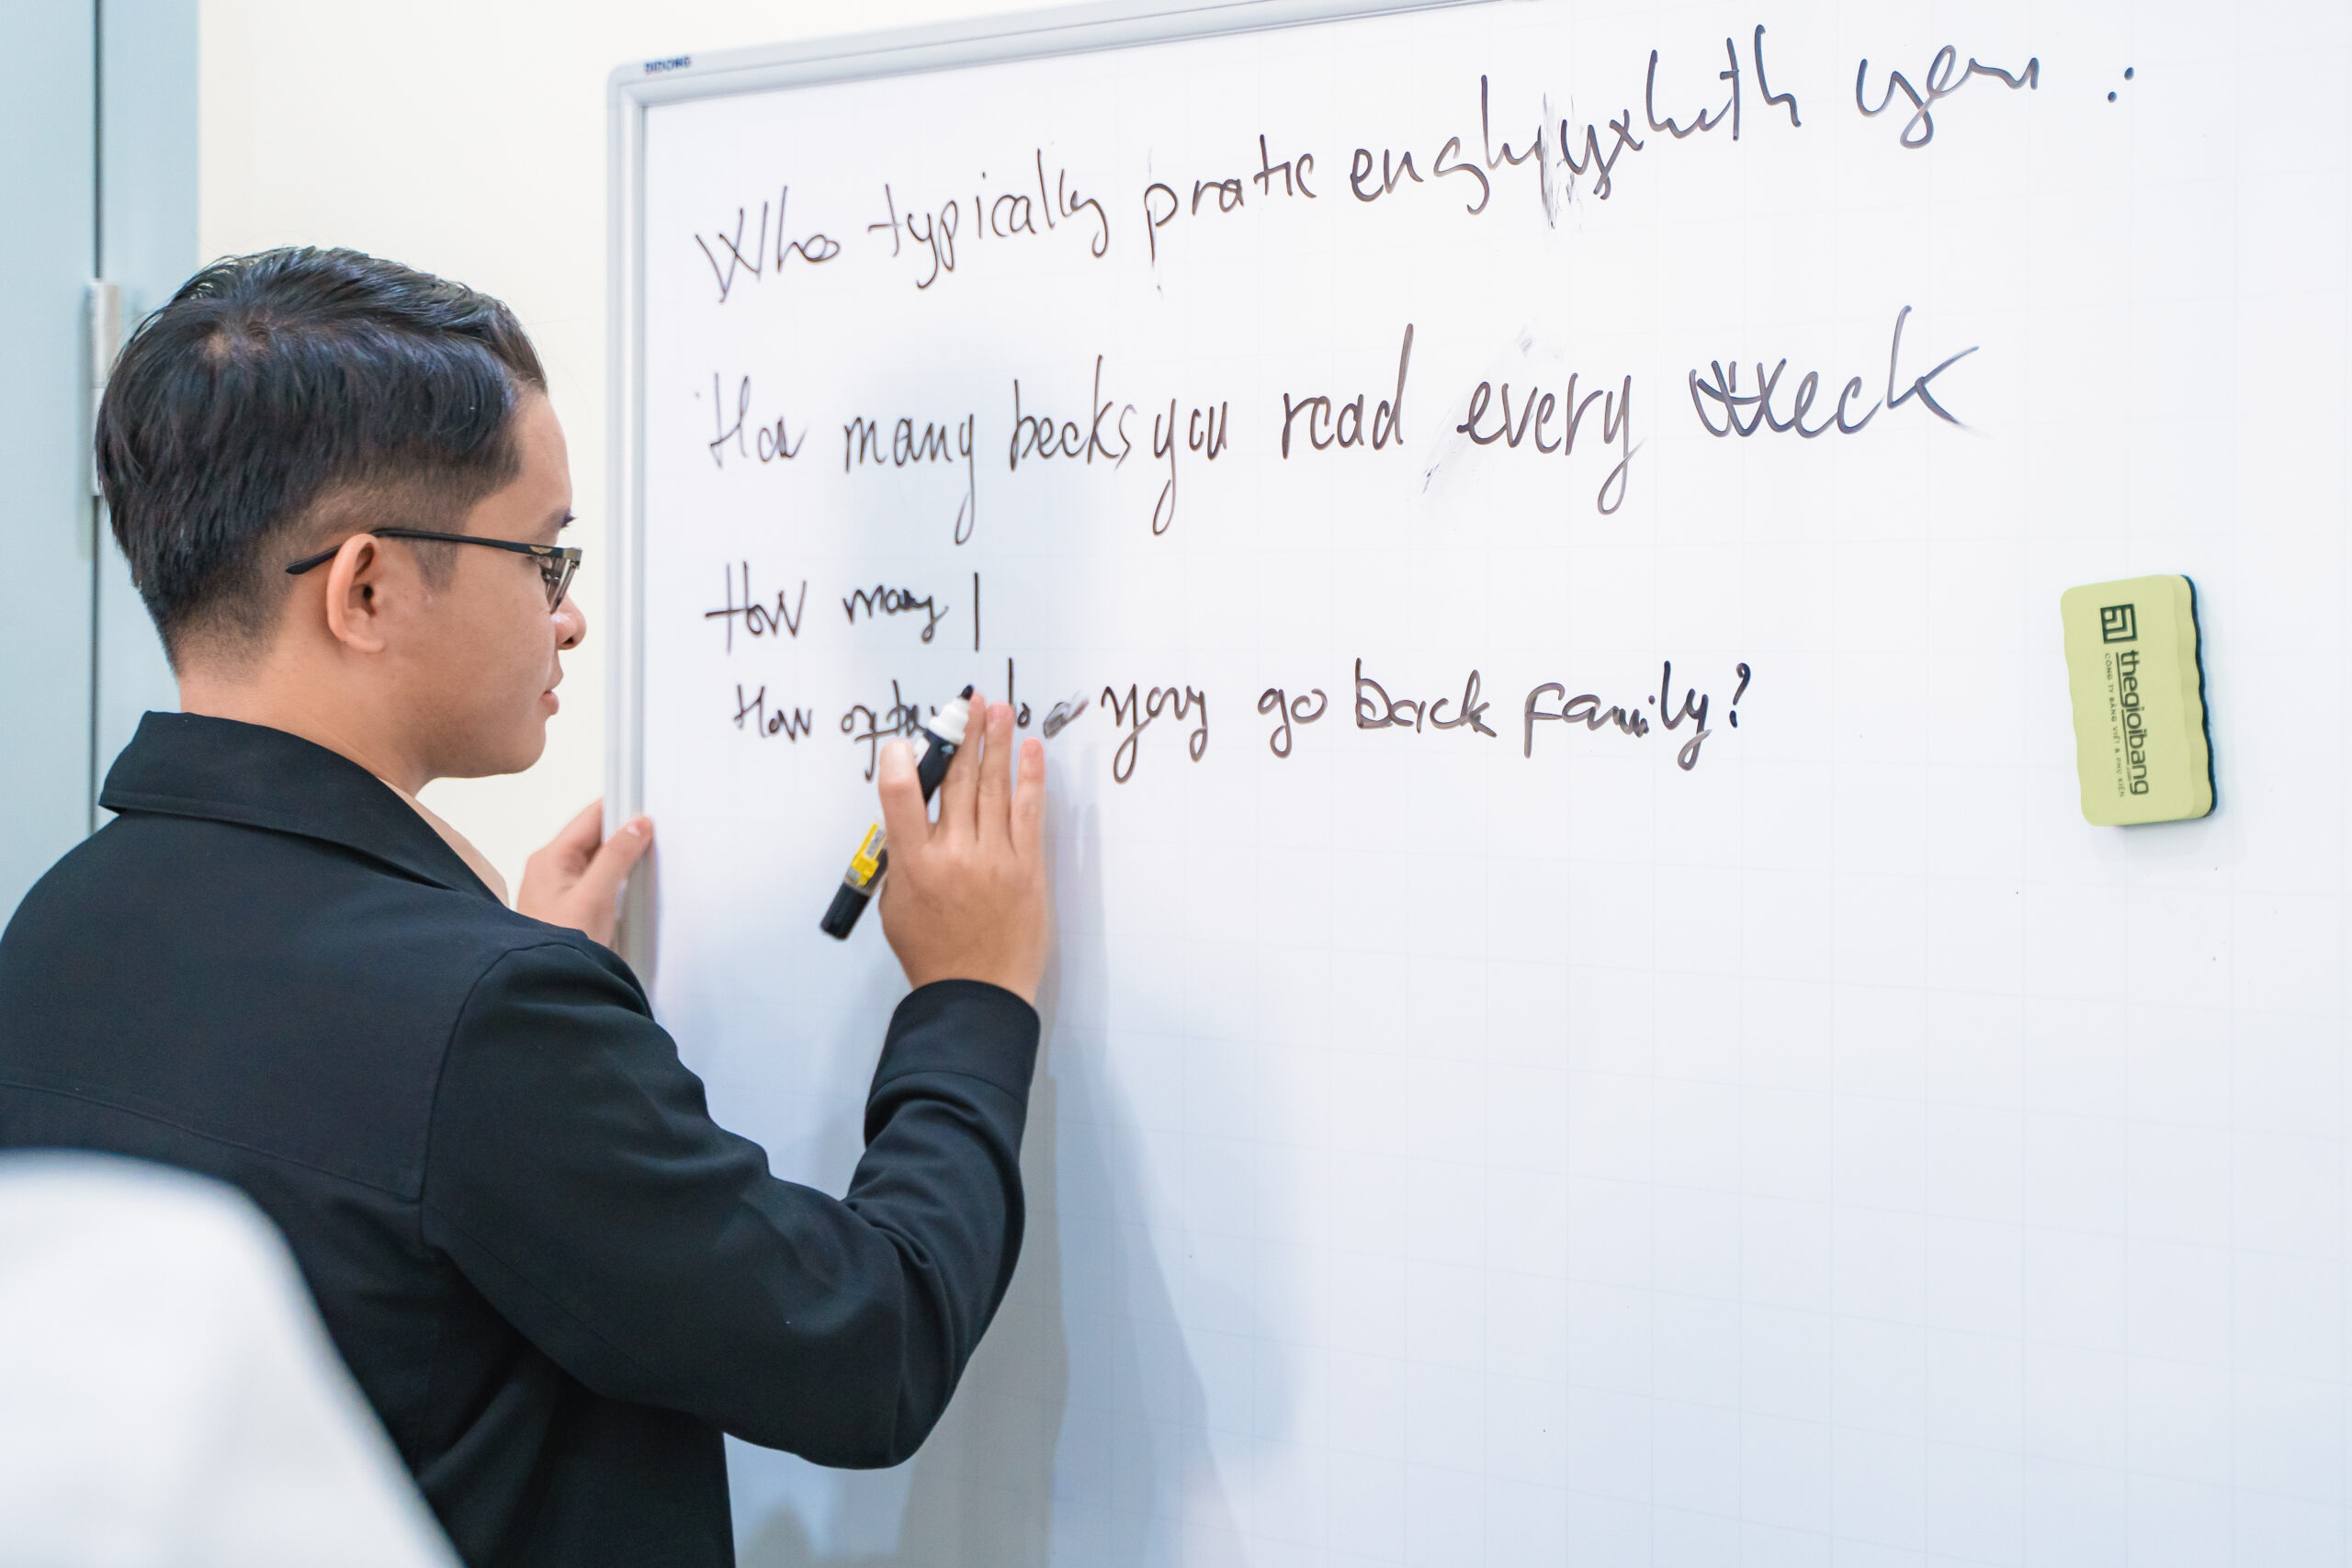 Who typically pratic with you :
How many becks you read every week
How many
How do you go back family?
thegioibang
CÔNG TY BẢNG VIẾT & PHỤ KIỆN